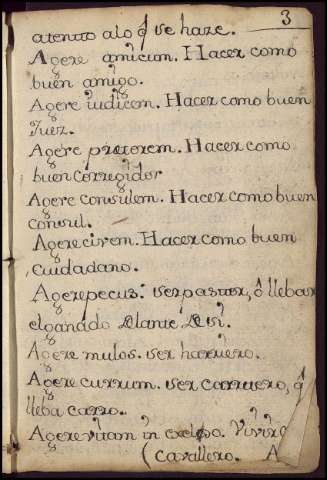 3
atento alo q̃ se haze.
Agere amicum. Hacer como
buen amigo.
Agere iudicem. Hacer como buen
Juez.
Agere prætorem. Hacer como
buen Corregidor
Agere consulem. Hacer como buen
consul.
Agere civem. Hacer como buen
cuidadano.
Agere pecus: ser pastor, ô llebar
el ganado delante de si.
Agere mulos. ser harriero.
Agere currum. ser carruero, q̃
lleba carro.
Agere vitam in
(Cavallero. A